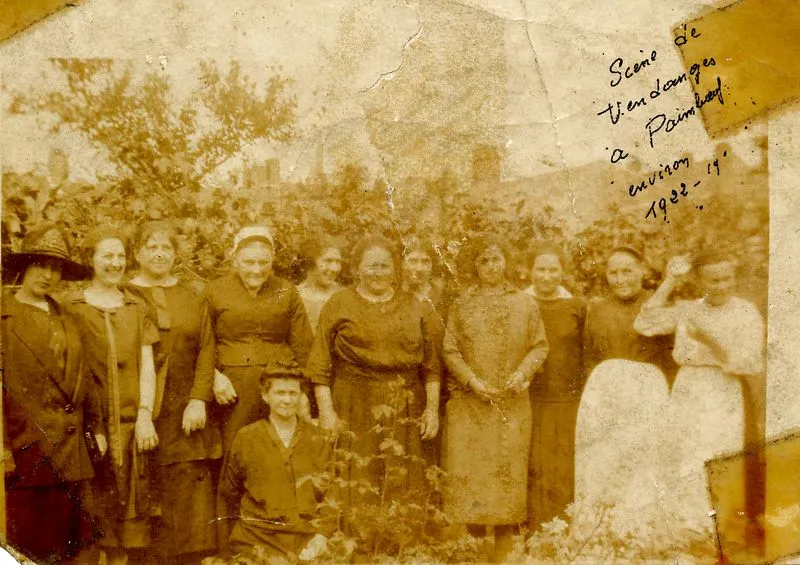 Scène de
Vendanges
à Paimbœuf
environ
1922-19